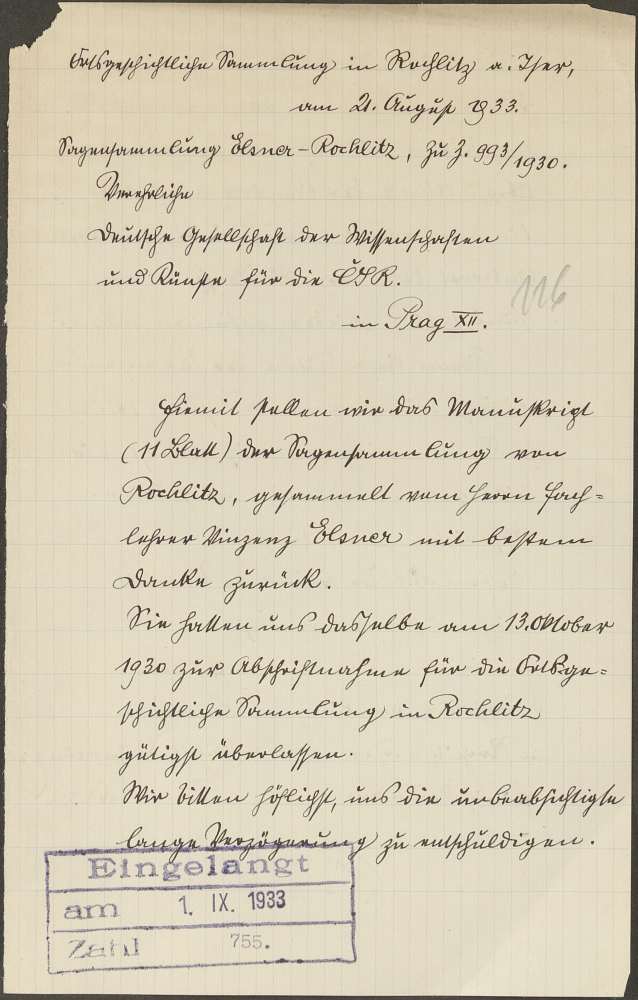 Ortsgeschichtliche Sammlung in Rochlitz a. Iser,
am 21. August 1933.
Sagensammlung Elsner-Rochlitz, zu Z. 993/1930.
Verehrliche
Deutsche Gesellschaft der Wissenschaften
und Künste für die ČSR.
116
in Prag XII.
Hiemit stellen wir das Manuskript
(11 Blatt) der Sagensammlung von
Rochlitz, gesammelt vom Herrn Fach=
lehrer Vinzenz Elsner mit bestem
Danke zurück.
Sie hatten uns dasselbe am 13. Oktober
1930 zur Abschriftnahme für die Ortsge=
schichtliche Sammlung in Rochlitz
gütigst überlassen.
Wir bitten höflichst, uns die unbeabsichtigte
lange Verzögerung zu entschuldigen.
Eingelangt
am 1. IX. 1933
Zahl 755.